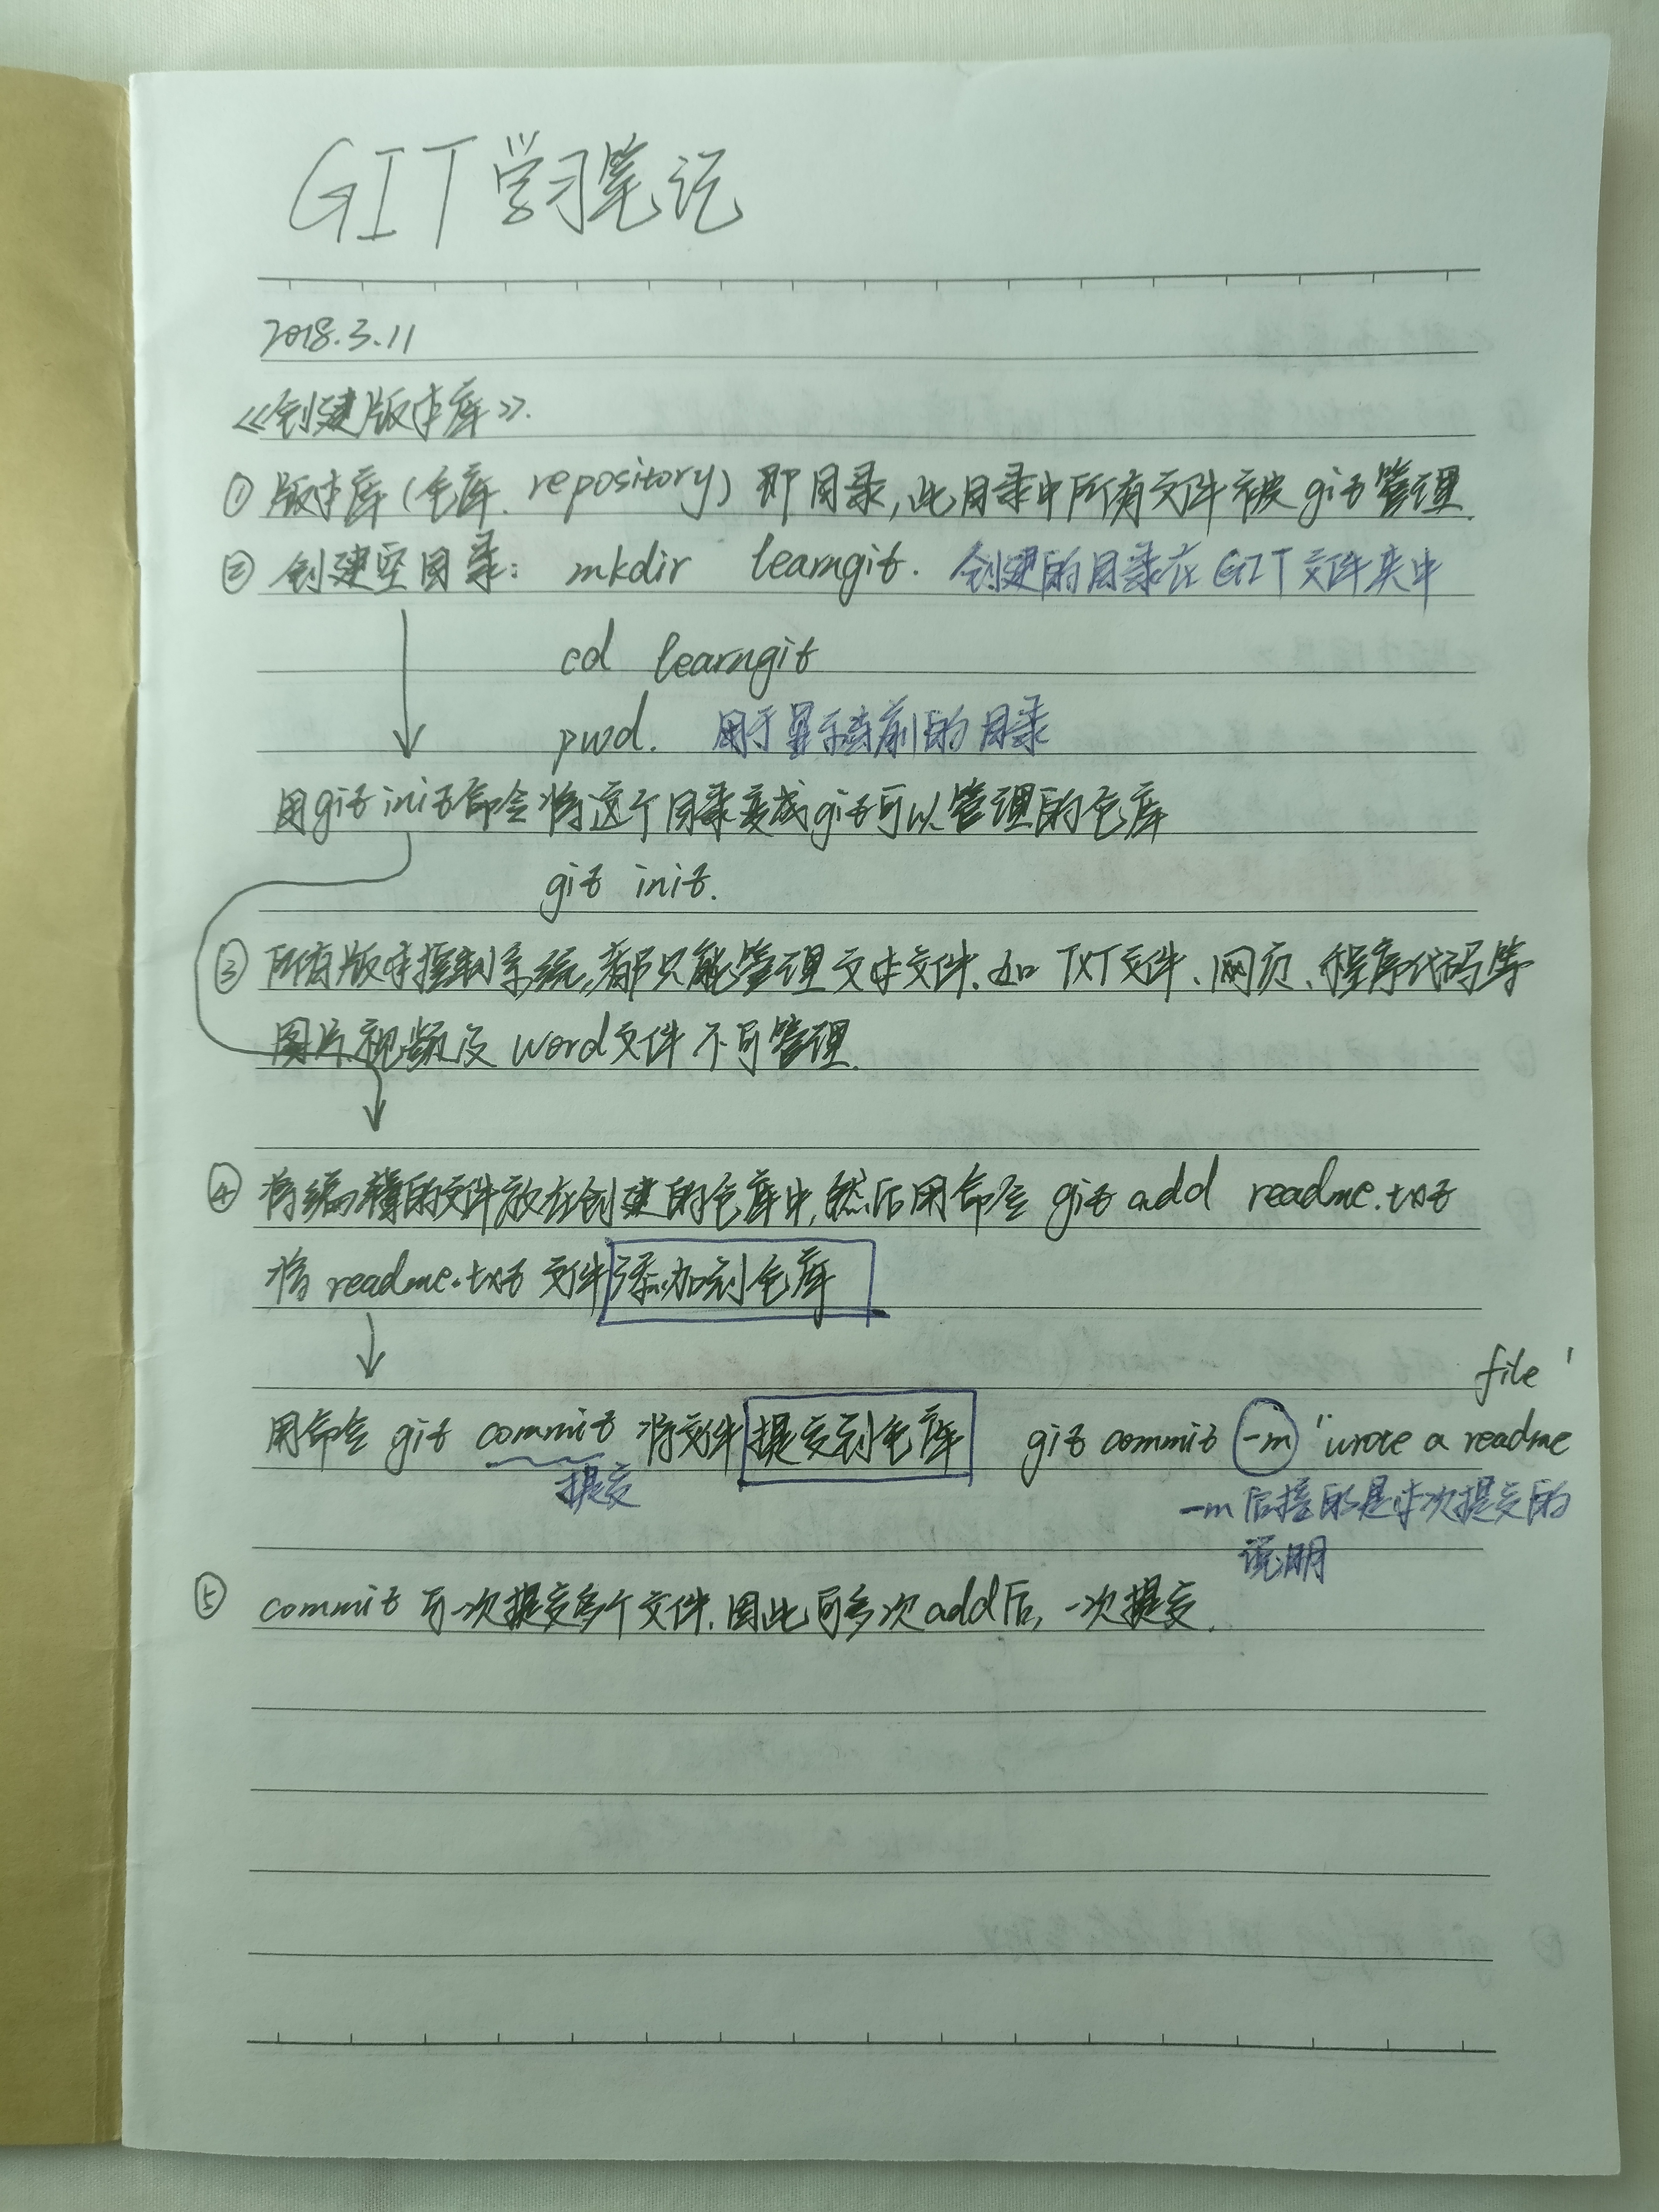 GIT学习笔记
2018.3.11
《创建版本库》.
① 版本库(仓库.repository)即目录,此目录中所有文件被git管理.
② 创建空目录: mkdir learngit. 创建的目录在GIT文件夹中
cd learngit
pwd. 用于显示当前的目录
用git init命令将这个目录变成git可以管理的仓库
git init.
③ 所有版本控制系统,都只能管理文本文件.如TXT文件、网页、程序代码等
图片.视频及word文件不可管理.
④ 将编辑的文件放在创建的仓库中,然后用命令 git add readme.txt
将 readme.txt 文件添加到仓库
file"
用命令 git commit 将文件提交到仓库 git commit -m "wrote a readme
提交
-m后接的是本次提交的
说明
⑤ commit可一次提交多个文件.因此可多次add后,一次提交.